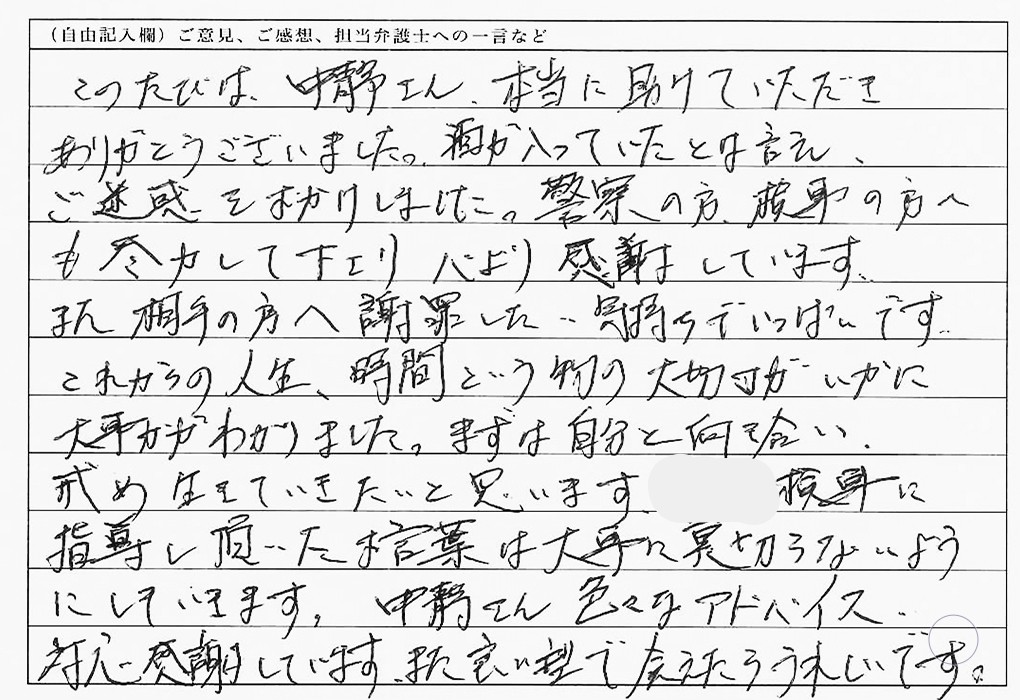 (自由記入欄)ご意見、ご感想、担当弁護士への一言など
このたびは、中静さん、本当に助けていただき
ありがとうございました。酒が入っていたとは言え、
ご迷惑をおかけしました。警察の方、検事の方へ
も尽力して下さり心より感謝しています。
また相手の方へ謝罪したい気持ちでいっぱいです。
これからの人生、時間という物の大切さがいかに
大事かがわかりました。まずは自分と向き合い、
戒め生きていきたいと思います。 検事に
指導し頂いたお言葉は大事に裏切らないよう
にしていきます。中静さん色々なアドバイス、
対応感謝しています。また良い型で会えたらうれしいです。